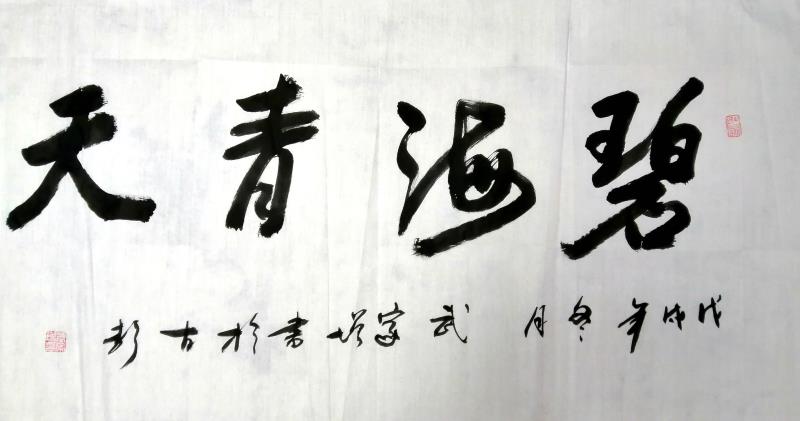 碧海青天
戊戌年冬月武家增书於古彭